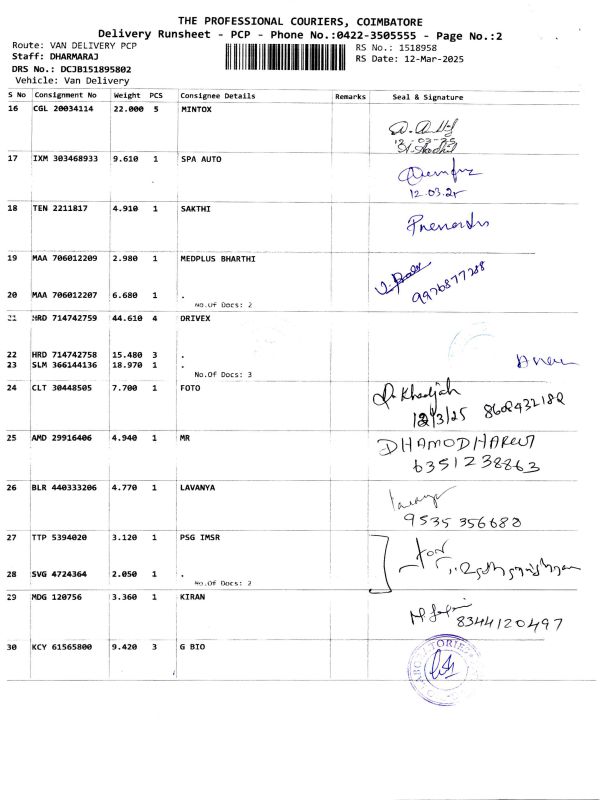 THE PROFESSIONAL COURIERS, COIMBATORE
Delivery Runsheet - PCP - Phone No.:0422-3505555 - Page No.:2
Route: VAN DELIVERY PCP
Staff: DHARMARAJ
DRS No.: DCJB151895802
Vehicle: Van Delivery
RS No.: 1518958
RS Date: 12-Mar-2025
S No Consignment No Weight PCS Consignee Details Remarks Seal & Signature
16 CGL 20034114 22.000 5 MINTOX
17 IXM 303468933 9.610 1 SPA AUTO
12.03.25
18 TEN 2211817 4.910 1 SAKTHI
19 MAA 706012209 2.980 1 MEDPLUS BHARTHI
9976877288
20 MAA 706012207 6.680 1 .
No.Of Docs: 2
21 HRD 714742759 44.610 4 DRIVEX
22 HRD 714742758 15.480 3 .
23 SLM 366144136 18.970 1 .
No.Of Docs: 3
24 CLT 30448505 7.700 1 FOTO
Khadijah
12/3/25 8602432182
25 AMD 29916406 4.940 1 MR
DHAMODHARAN
6351238863
26 BLR 440333206 4.770 1 LAVANYA
9535356680
27 TTP 5394020 3.120 1 PSG IMSR
for
28 SVG 4724364 2.050 1 .
No.Of Docs: 2
29 MDG 120756 3.360 1 KIRAN
8344120497
30 KCY 61565800 9.420 3 G BIO